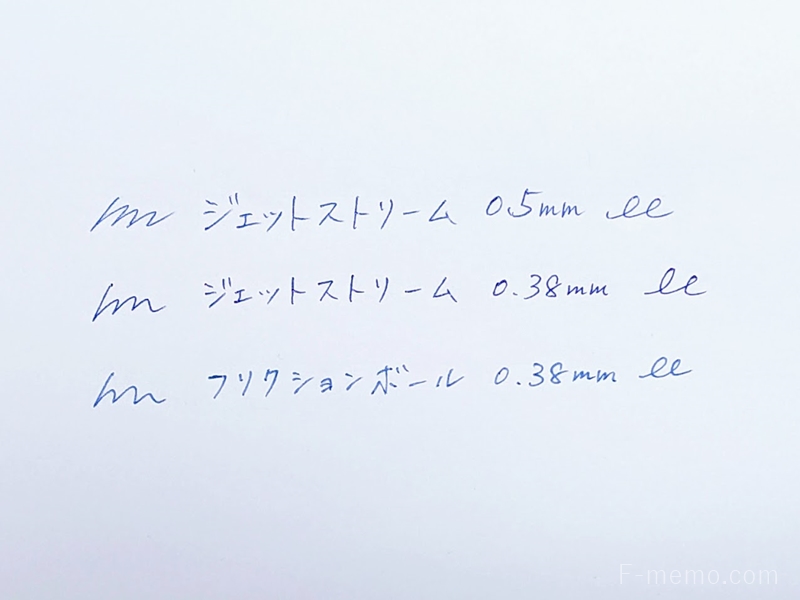 ジェットストリーム 0.5mm
ジェットストリーム 0.38mm
フリクションボール 0.38mm
F-memo.com